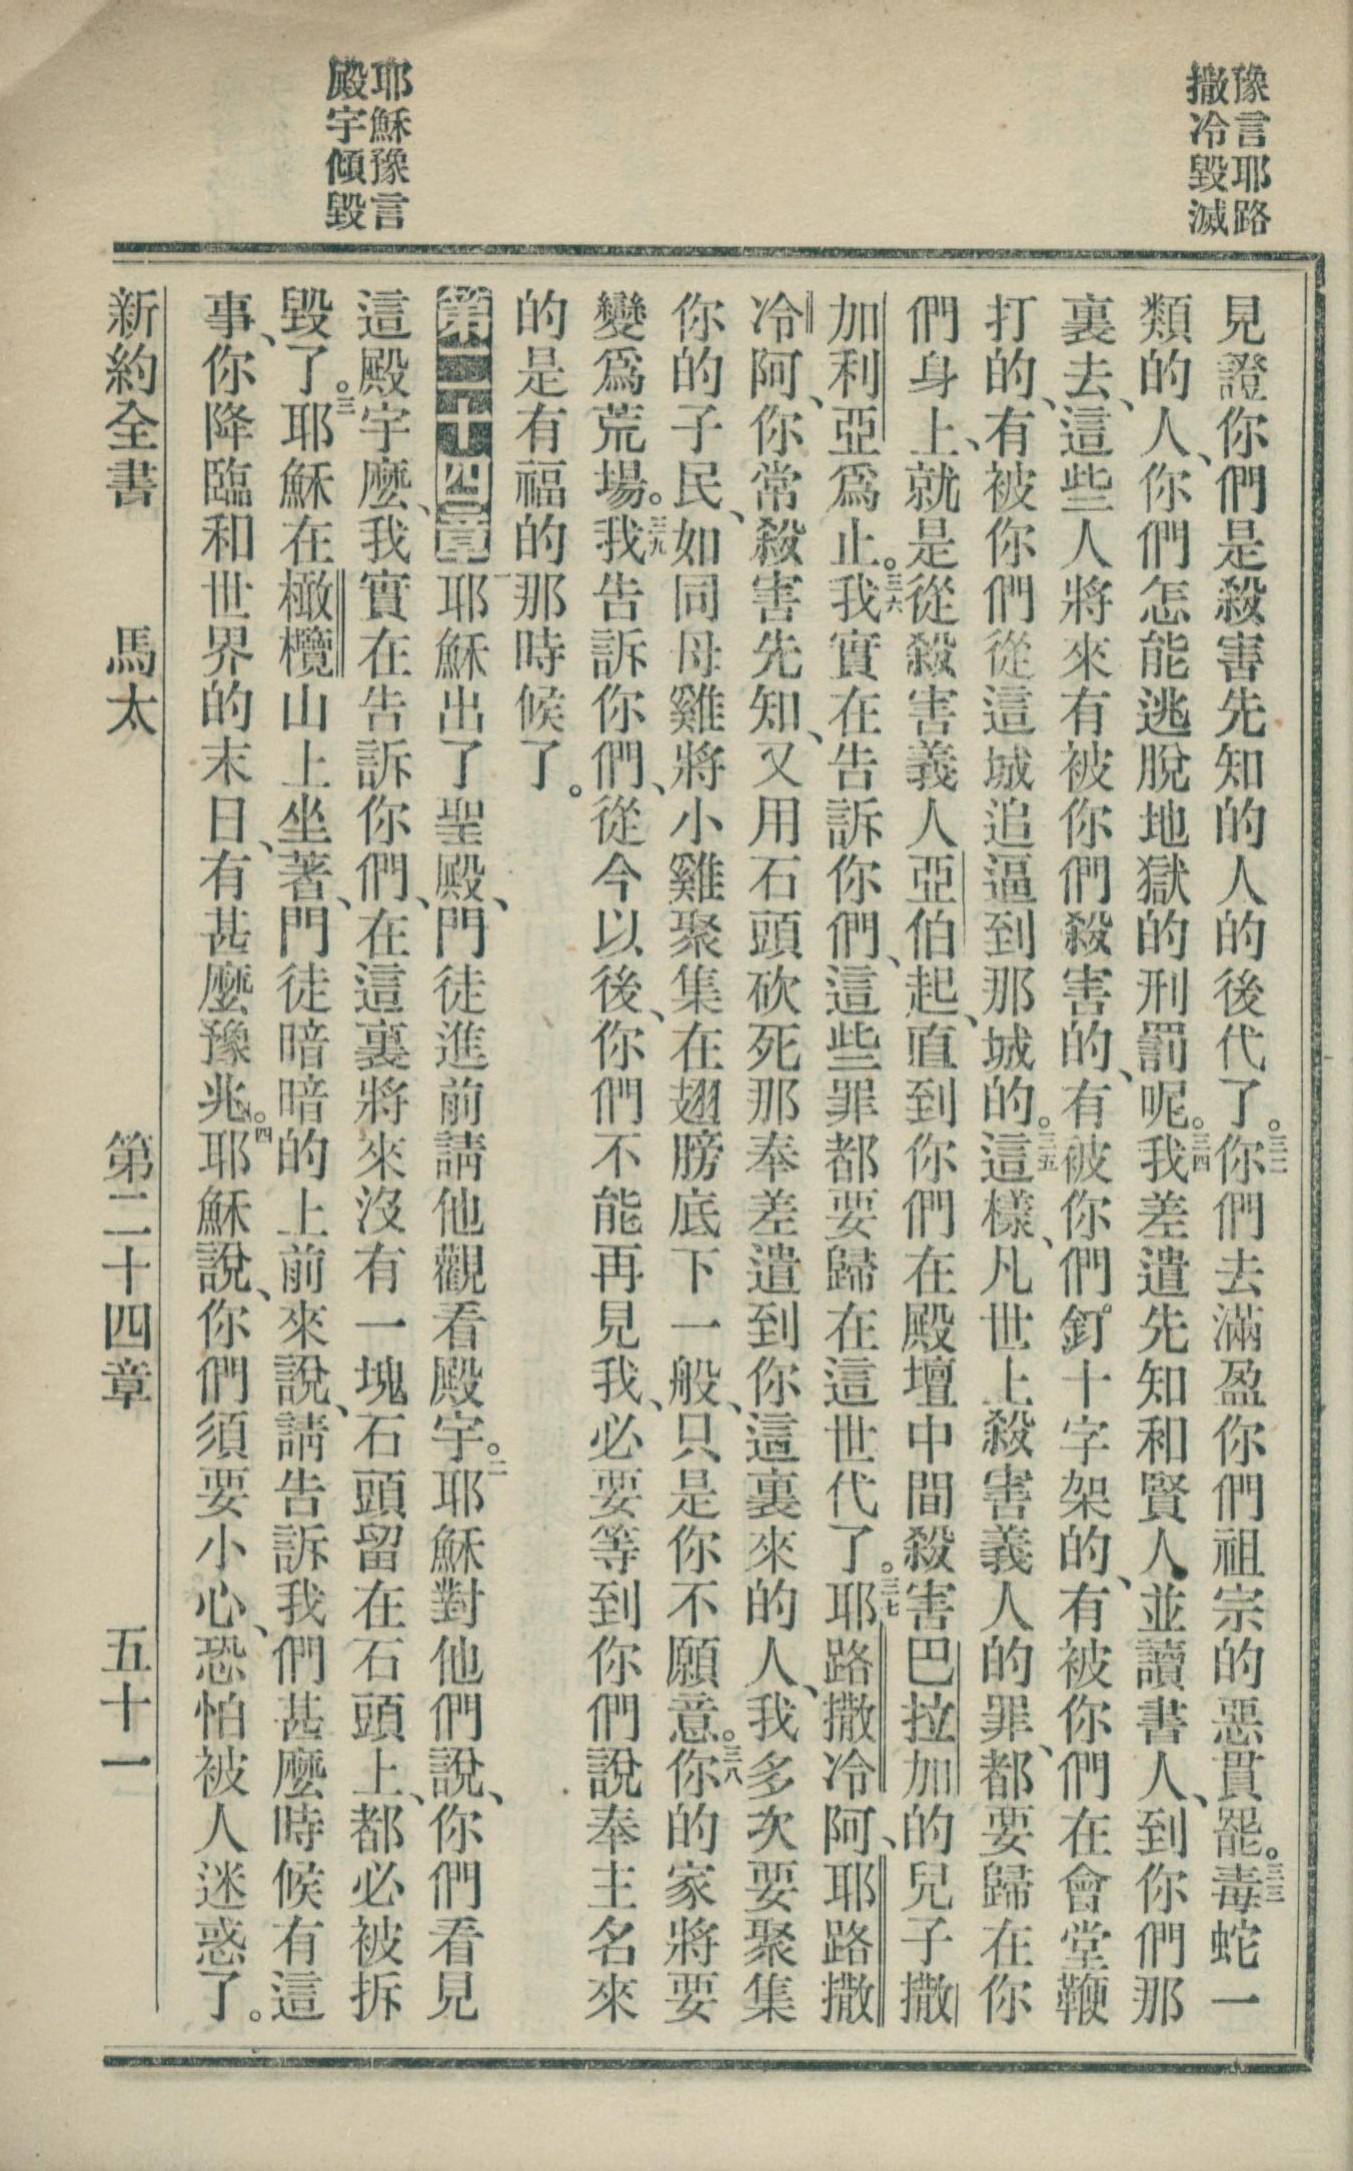 豫言耶路
撒冷毀滅
耶穌豫言
殿宇傾毀
見證你們是殺害先知的人的後代了。三二你們去滿盈你們祖宗的惡貫罷。三三毒蛇一
類的人、你們怎能逃脫地獄的刑罰呢。三四我差遣先知和賢人、並讀書人、到你們那
裏去、這些人將來有被你們殺害的、有被你們釘十字架的、有被你們在會堂鞭
打的、有被你們從這城追逼到那城的。三五這樣、凡世上殺害義人的罪、都要歸在你
們身上、就是從殺害義人亞伯起、直到你們在殿壇中間殺害巴拉加的兒子撒
加利亞爲止。三六我實在告訴你們、這些罪都要歸在這世代了。三七耶路撒冷阿、耶路撒
冷阿、你常殺害先知、又用石頭砍死那奉差遣到你這裏來的人、我多次要聚集
你的子民、如同母雞將小雞聚集在翅膀底下一般、只是你不願意。三八你的家將要
變爲荒場。三九我告訴你們、從今以後、你們不能再見我、必要等到你們說奉主名來
的是有福的那時候了。
第二十四章一耶穌出了聖殿、門徒進前請他觀看殿宇。二耶穌對他們說、你們看見
這殿宇麼、我實在告訴你們、在這裏將來沒有一塊石頭留在石頭上、都必被拆
毀了。三耶穌在橄欖山上坐著、門徒暗暗的上前來說、請告訴我們甚麼時候有這
事、你降臨和世界的末日、有甚麼豫兆。四耶穌說、你們須要小心、恐怕被人迷惑了。
新約全書 馬太 第二十四章 五十一